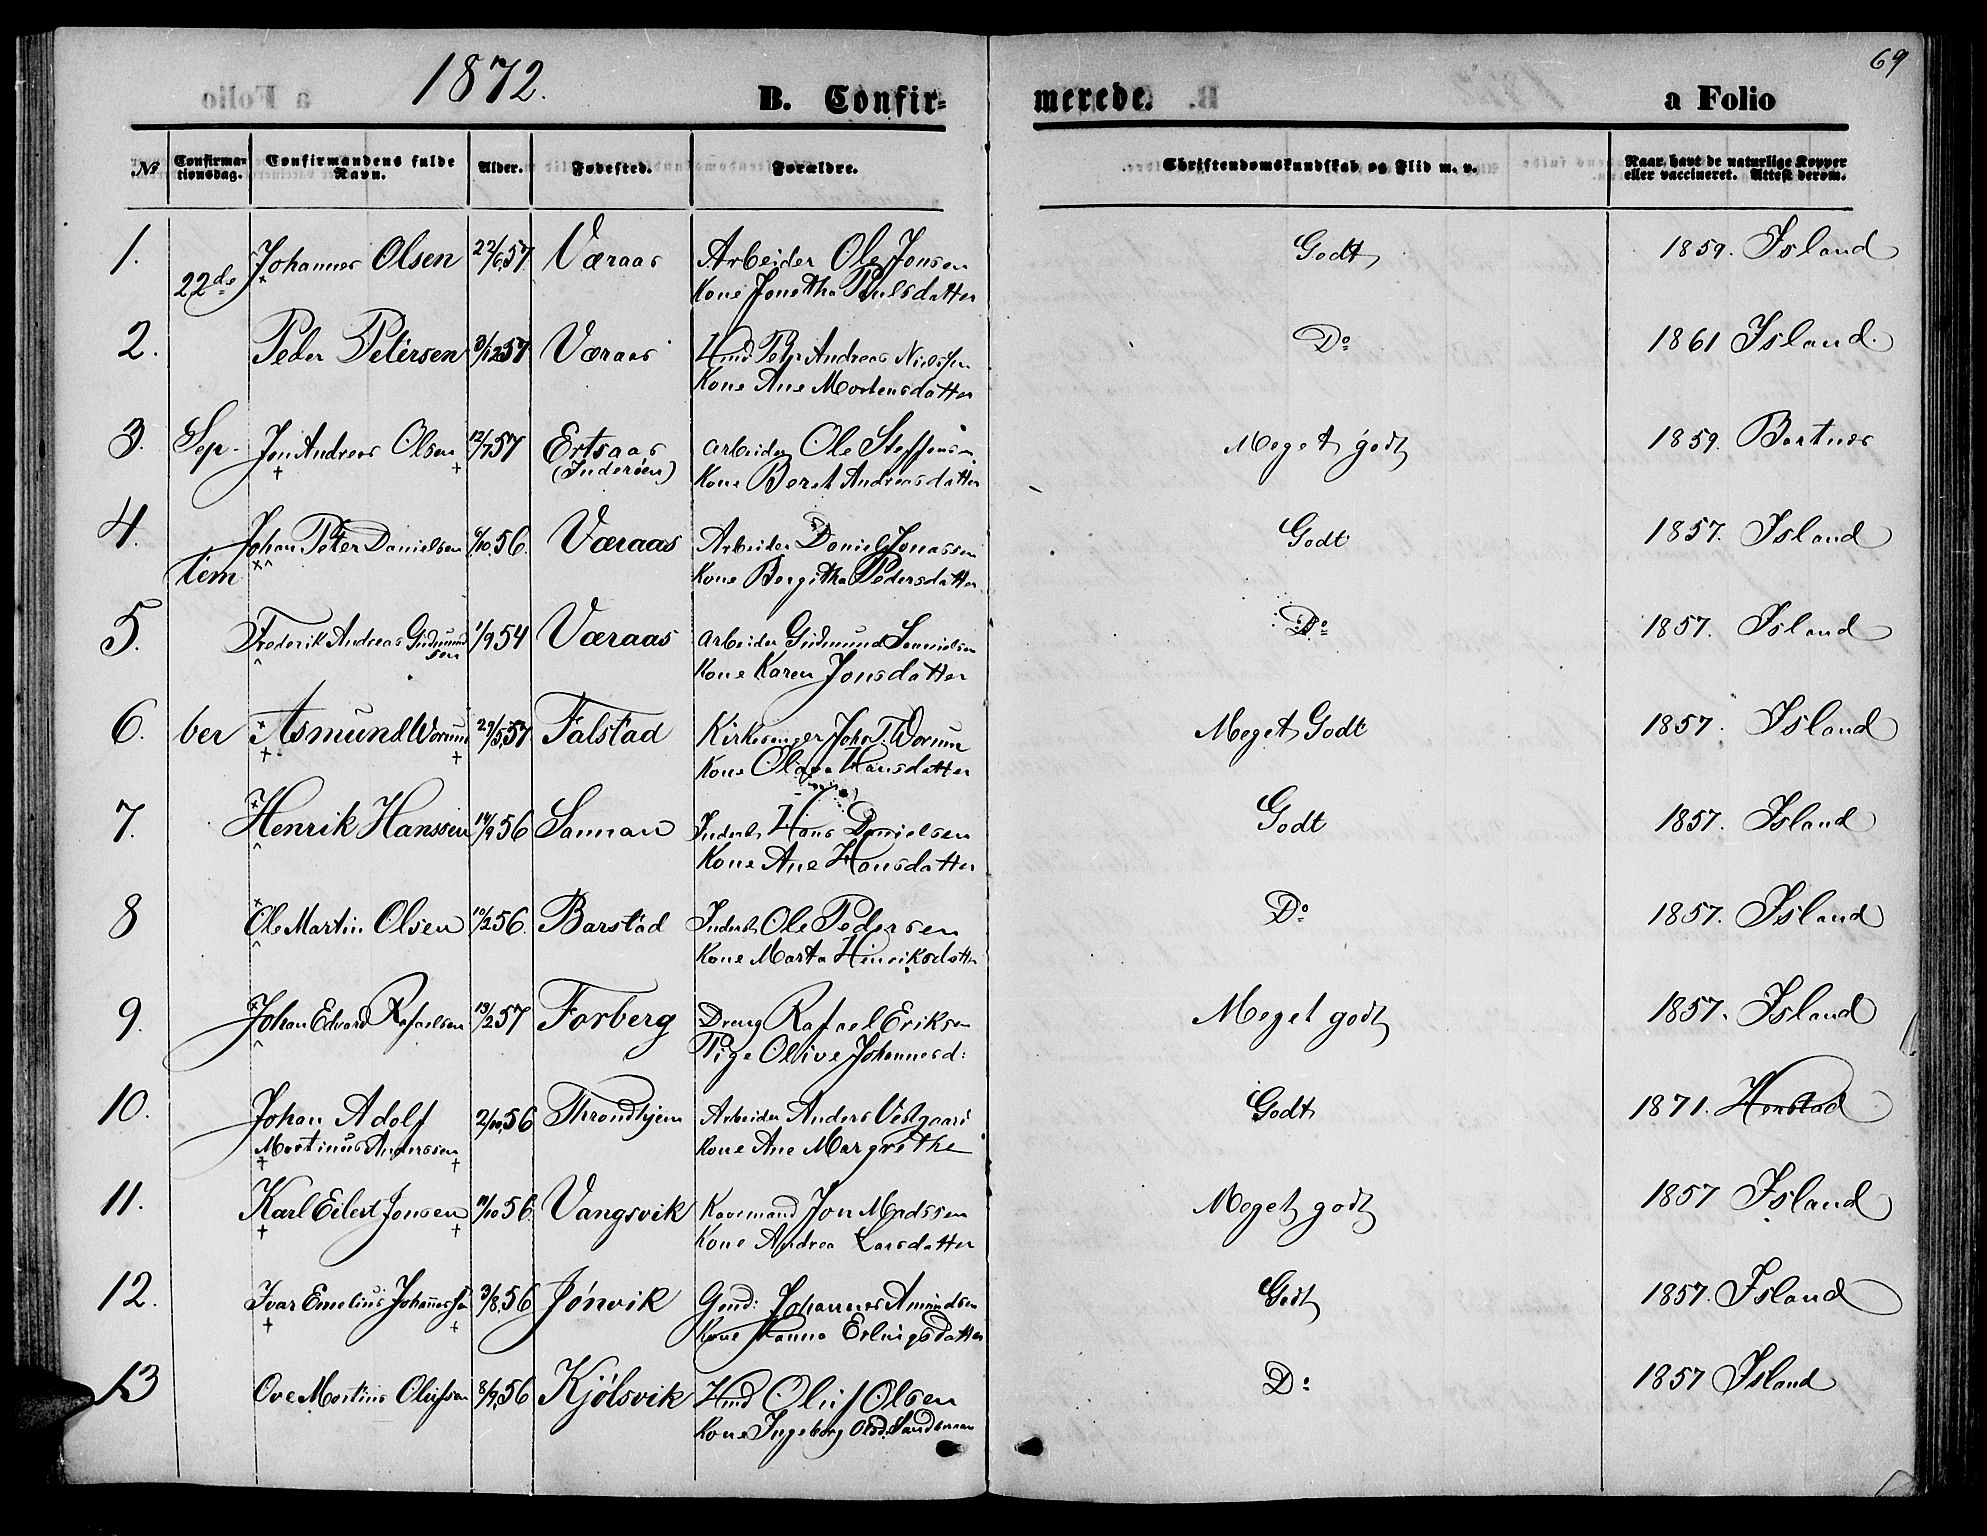 69
1872.
B. Confir-
merede.
a Folio
No
Confirma-
tionsdag.
Confirmandens fulde
Navn.
Alder.
Fødested.
Forældre.
Christendomskundskab og Flid m. v.
Naar havt de naturlige Kopper
eller vaccineret. Attest derom.
1. Johannes Olsen 22/6 57. Væraas Arbeider Ole Jonsen Godt 1859. Island
22de Kone Jonetha Paulsdatter
2. Peder Petersen 3/12 57 Væraas Hmd. Petr Andreas Nielssen Do 1861 Island.
Kone Ane Mortensdatter
3. Sep- Jon Andreas Olsen 12/7 57 Ertsaas Arbeider Ole Steffensen Meget godt 1859. Bartnes
(Inderøen) Kone Beret Andreasdatter
4. Johan Peter Danielsen 6/10. 56. Væraas Arbeider Daniel Jonassen Godt 1857. Island
tem Kone Bergitha Pedersdatter
5. Frederik Andreas Gudmund 1/9 54 Væraas Arbeider Gudmund Do 1857. Island
sen Kone Karen Jonsdatter
6. ber Asmund Worum 29/5 57 Falstad Kirkesanger Johs T. Worum Meget Godt 1857. Island
Kone Olava Hansdatter
7. Henrik Hanssen 14/9 56 Sannan Inderst Hans Danielsen Godt 1857. Island
Kone Ane Hansdatter
8 Ole Martin Olsen 10/2 56. Barstad Inderst Ole Pedersen Do 1857. Island
Kone Marta Henriksdatter
9. Johan Edvard Rafaelsen 13/2 57 Forberg Dreng Rafael Eriksen Meget godt 1857. Island
Pige Olive Johannesd:
10. Johan Adolf 2/10. 56 Throndhjem Arbeider Anders Vestgaard Godt 1871. Hanstad
Martinus Anderssen Kone Ane Margrethe
11. Karl Eilert Jonsen 11/10 56. Vangsvik Kaarmand Jon Madssen Meget godt 1857 Island
Kone Andrea Larsdatter
12. Ivar Emelius Johannessen 3/8. 56 Jønvik Gmd: Johannes Amundsen Godt 1857. Island
Kone Hanna Erlingsdatter
13 Ove Martins Olufsen 8/9. 56 Kjølsvik Hmd Oluf Olsen Do 1857 Island
Kone Ingeborg Olsd. Sandaunan